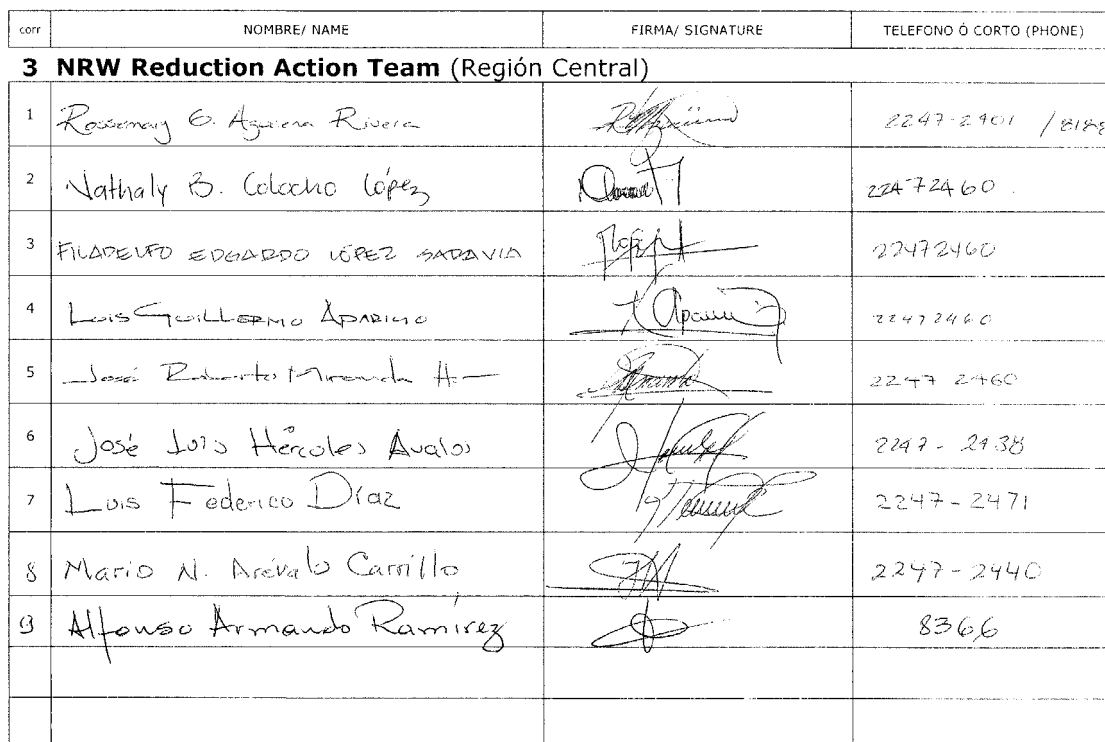 corr NOMBRE/ NAME FIRMA/ SIGNATURE TELEFONO Ó CORTO (PHONE)
3 NRW Reduction Action Team (Región Central)
1 Rossemary G. Rivera 2247-2901 / 8188
2 Nathaly B. Colocho López 22472460
3 FILADELFO EDGARDO LÓPEZ SARAVIA 22472460
4 Luis Guillermo Aparicio 22472460
5 José Roberto Miranda H. 2247 2460
6 José Luis Hércules Avalos 2247-2438
7 Luis Federico Díaz 2247-2471
8 Mario N. Arévalo Carrillo 2247-2440
9 Alfonso Armando Ramírez 8366